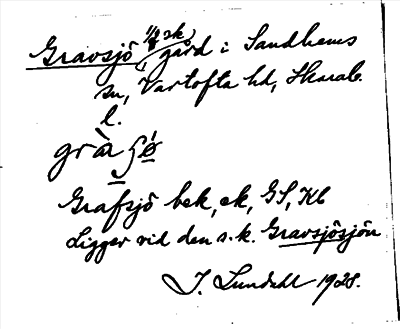 Gravsjö, 1/4 sk, gård i Sandhems
sn, Vartofta hd, Skarab.
l.
Grafsjö bek, ek, GS, Kb
Ligger vid den s.k. Gravsjösjön
J. Lundahl 1928.